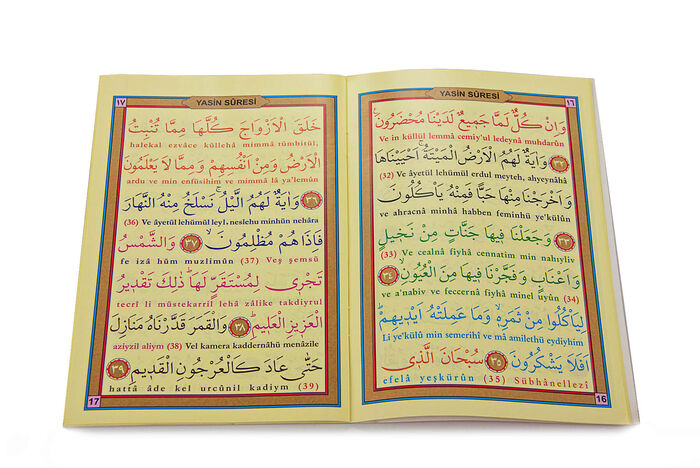 YASİN SÛRESİ
١٦
وَاِنْ كُلٌّ لَمَّا جَمِيعٌ لَدَيْنَا مُحْضَرُونَ
Ve in küllül lemmâ cemiy'ul ledeynâ muhdarûn
وَاٰيَةٌ لَهُمُ الْاَرْضُ الْمَيْتَةُ اَحْيَيْنَاهَا
(32) Ve âyetül lehümül erdul meyteh, ahyeynâhâ
وَاَخْرَجْنَا مِنْهَا حَبًّا فَمِنْهُ يَأْكُلُونَ
ve ahracnâ minhâ habben feminhü ye'külûn
٣٣ وَجَعَلْنَا فِيهَا جَنَّاتٍ مِنْ نَخِيلٍ
(33) Ve cealnâ fiyhâ cennatim min nahıyliv
وَاَعْنَابٍ وَفَجَّرْنَا فِيهَا مِنَ الْعُيُونِ
ve a'nabiv ve feccernâ fiyhâ minel uyûn (34)
لِيَأْكُلُوا مِنْ ثَمَرِهِ وَمَا عَمِلَتْهُ اَيْدِيهِمْ
Li ye'külû min semerihî ve mâ amilethü eydiyhim
اَفَلَا يَشْكُرُونَ ٣٥ سُبْحَانَ الَّذِي
efelâ yeşkürûn (35) Sübhânellezî
16
١٧
YASİN SÛRESİ
خَلَقَ الْاَزْوَاجَ كُلَّهَا مِمَّا تُنْبِتُ
halekal ezvâce küllehâ mimmâ tümbitül
الْاَرْضُ وَمِنْ اَنْفُسِهِمْ وَمِمَّا لَا يَعْلَمُونَ
ardu ve min enfüsihim ve mimmâ lâ ya'lemûn
٣٦ وَاٰيَةٌ لَهُمُ الَّيْلُ نَسْلَخُ مِنْهُ النَّهَارَ
(36) Ve âyetül lehümül leyl, neslehu minhün nehâra
فَاِذَا هُمْ مُظْلِمُونَ ٣٧ وَالشَّمْسُ
fe izâ hüm muzlimûn (37) Veş şemsü
تَجْرِي لِمُسْتَقَرٍّ لَهَا ذٰلِكَ تَقْدِيرُ
tecrî li müstekarril lehâ zâlike takdiyrul
الْعَزِيزِ الْعَلِيمِ ٣٨ وَالْقَمَرَ قَدَّرْنَاهُ مَنَازِلَ
aziyzil aliym (38) Vel kamera kaddernâhü menâzile
حَتَّى عَادَ كَالْعُرْجُونِ الْقَدِيمِ ٣٩
hattâ âde kel urcûnil kadiym (39)
17